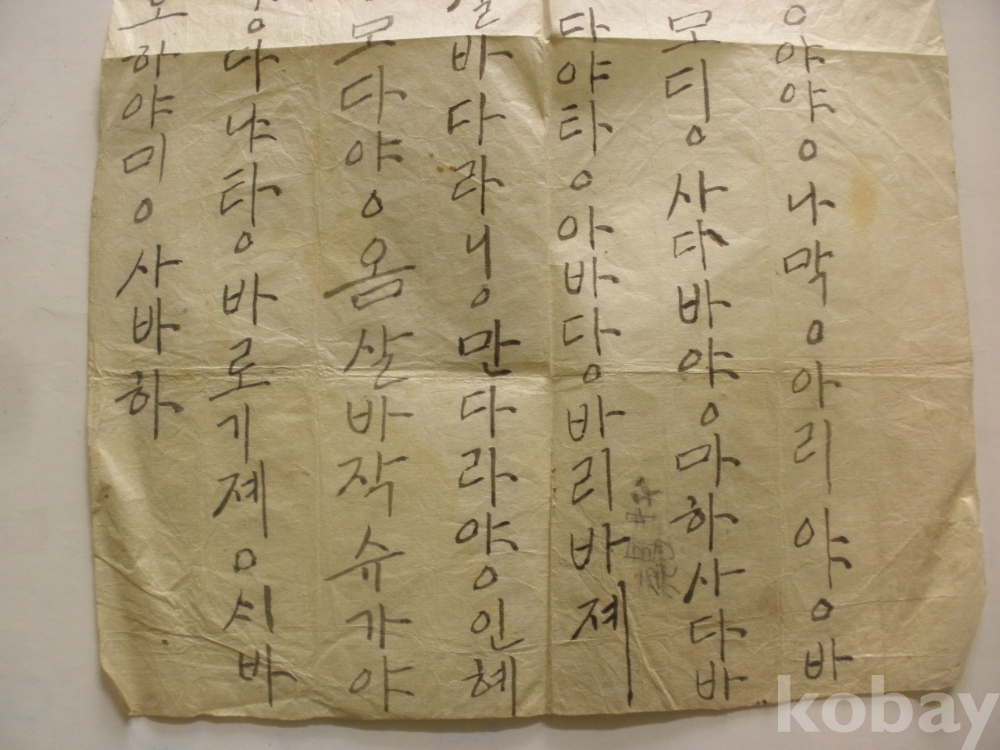 ㅇ야야ㅇ나막ㅇ아리야ㅇ바
모디ㅇ사다바야ㅇ마하사다바
다야타ㅇ아바다ㅇ바리바졔
살바다라니ㅇ만다라야ㅇ인혜
모다야ㅇ옴살바작슈가야
ㅇ다냐타ㅇ바로기졔ㅇ싀바
하야미ㅇ사바하
kobay